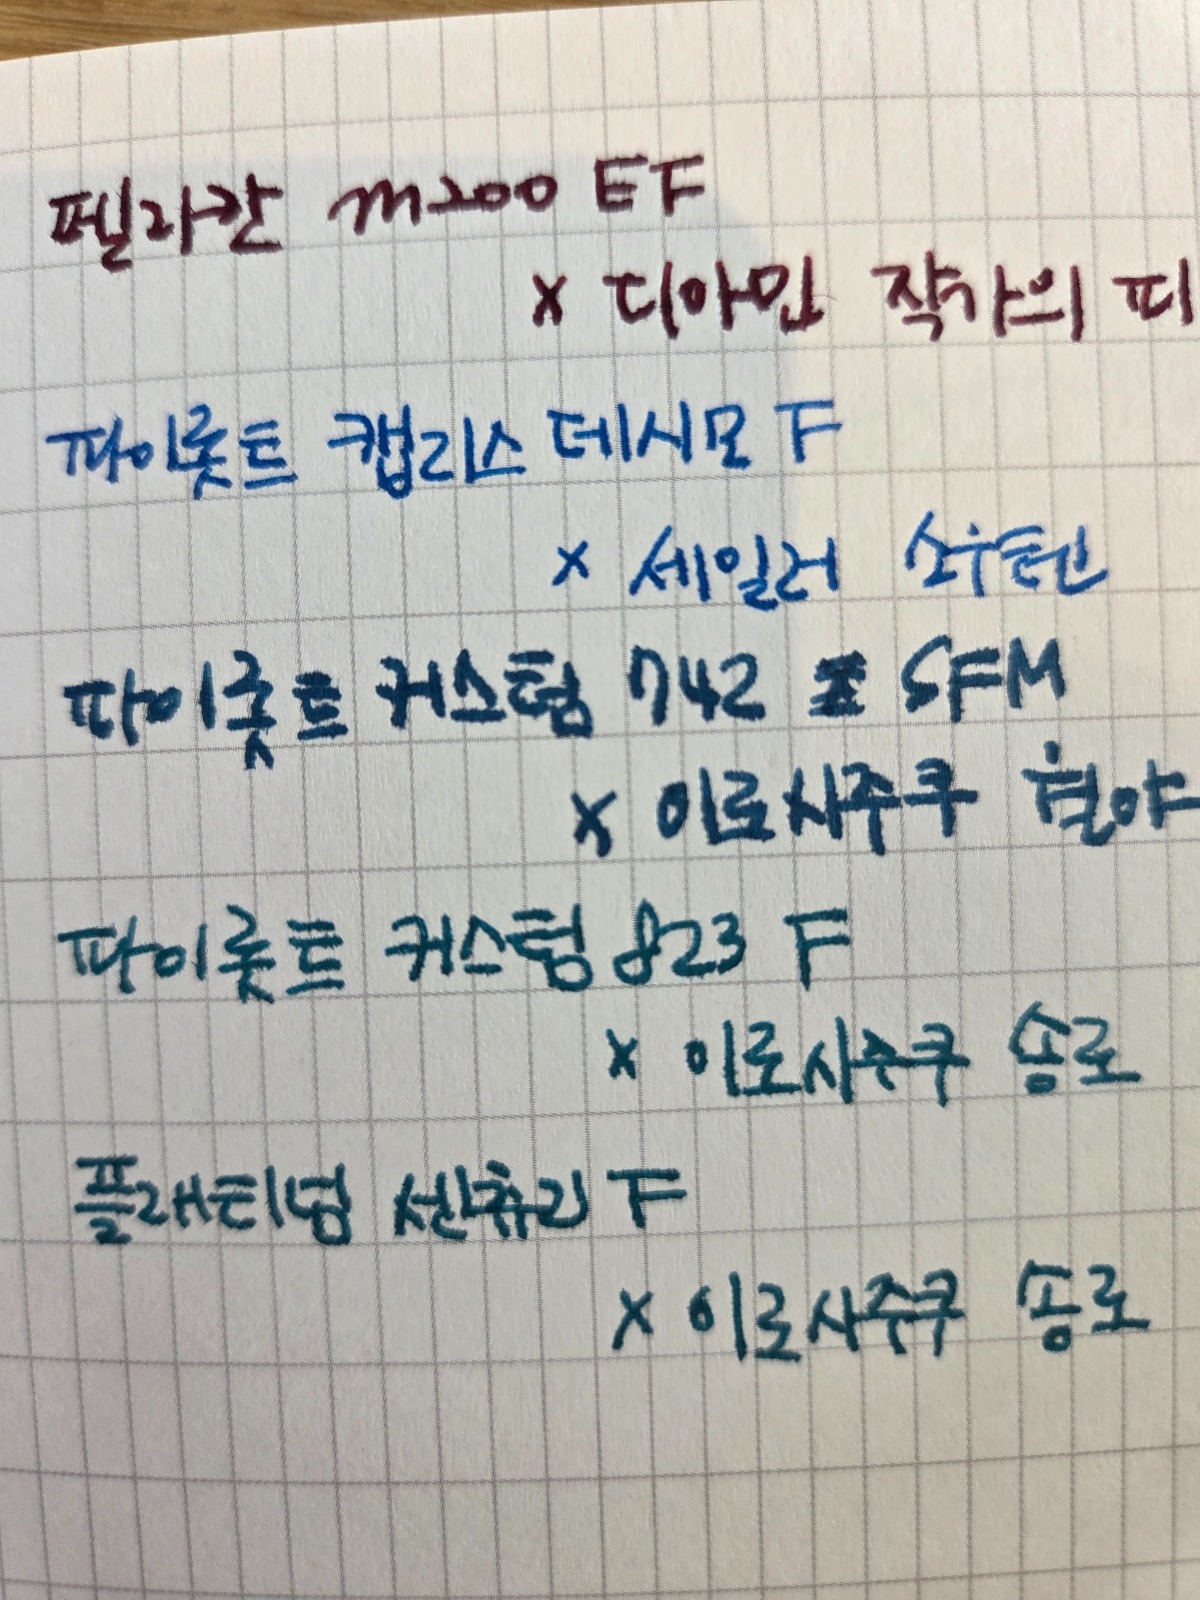 펠리칸 m200 EF
x 디아민 작가의 피
파이롯트 캡리스 데시모 F
x 세일러 소우텐
파이롯트 커스텀 742 SFM
x 이로시주쿠 월야
파이롯트 커스텀 823 F
x 이로시주쿠 송로
플래티넘 센츄리 F
x 이로시주쿠 송로